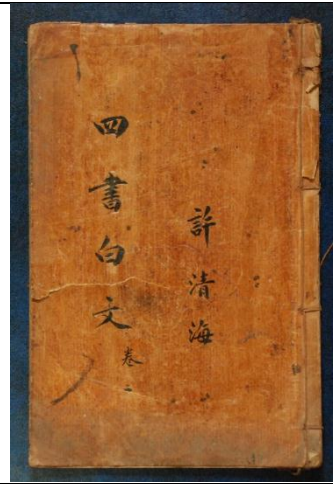 許清海
四書白文 卷二